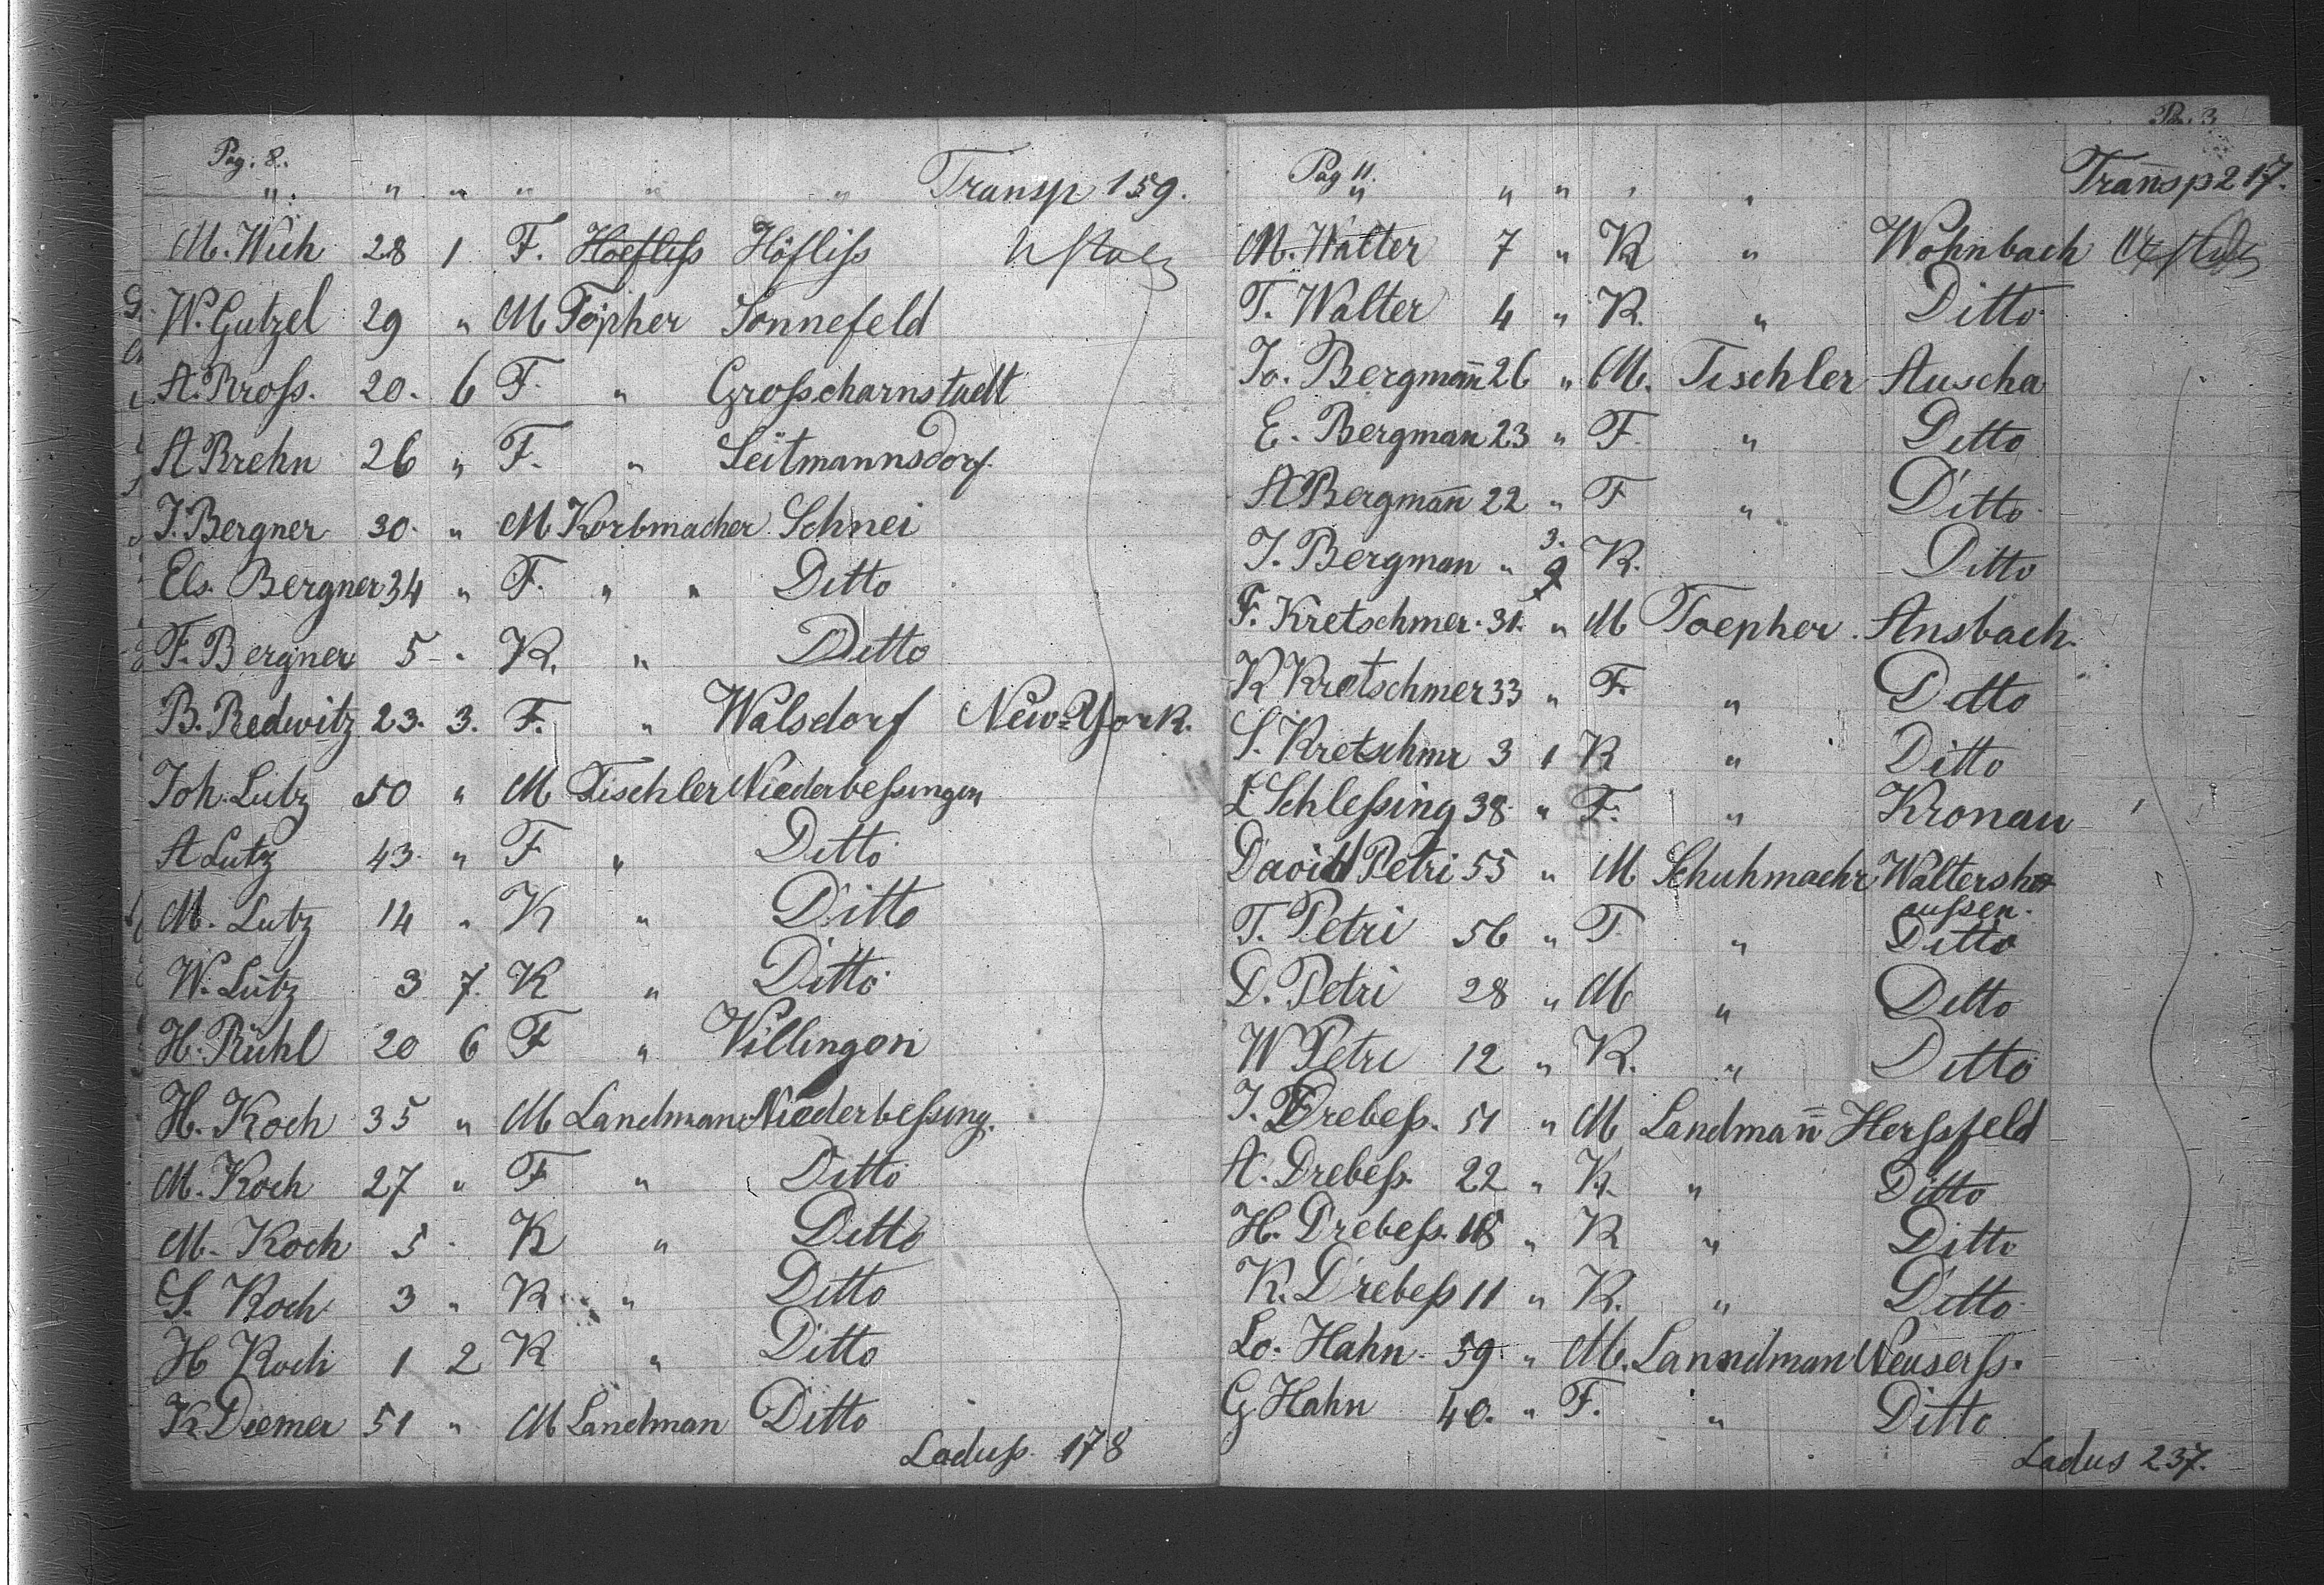 Pag. 8.
" " " " " " Transp 159.
M. Wich 28 1 F. Hoefliss Höfliss
W. Gutzel 29 " M Töpher Sonnefeld
A. Kross. 20. 6 F. " Grosscharnstadt
A Brehn 26 " F. " Seitmannsdorf.
J. Bergner 30. " M Korbmacher Schnei
Els. Bergner 34 " F. " " Ditto
F. Bergner 5 - " K. " Ditto
B. Redwitz 23. 3. F. " Walsdorf New-York.
Joh. Lutz 50 " M Tischler Niederbessingen
A Lutz 43. " F " Ditto
M. Lutz 14 " K " Ditto
W. Lutz 3 7. K " Ditto
H. Rühl 20 6 F " Villingen
H. Koch 35 " M Landman Niederbessing.
M. Koch 27 " F " Ditto
M. Koch 5 - K " Ditto
S. Koch 3 " K " Ditto
H Koch 1 2 K " Ditto
K. Diemer 51 " M Landman Ditto
Laduss. 178
Pag 11.
" " " " " Transp 217.
M. Walter 7 " K " Wohnbach
T. Walter 4 " K. " Ditto
Jo. Bergman̄ 26 " M. Tischler Auscha
E. Bergman 23 " F. " Ditto
A Bergman̄ 22 " F " Ditto
J. Bergman " 3. K. Ditto
F. Kretschmer. 31. " M Toepher. Ansbach.
K Kretschmer 33 " F. " Ditto
S. Kretschmr 3 1 K " Ditto
L Schlessing 38 " F. " Kronau
David Petri 55 " M Schuhmachr Waltersh
aussen.
T. Petri 56 " F " Ditto
D. Petri 28 " M " Ditto
W Petri 12 " K. " Ditto
J. Drebess. 51 " M Landman̄ Herssfeld
A. Drebess. 22 " K. " Ditto
H. Drebess. 18 " K " Ditto
K. Drebess 11 " K. " Ditto
Lo. Hahn 59. " M. Lanndman Neuserss.
G. Hahn 40. " F. " Ditto
Ladus 237.